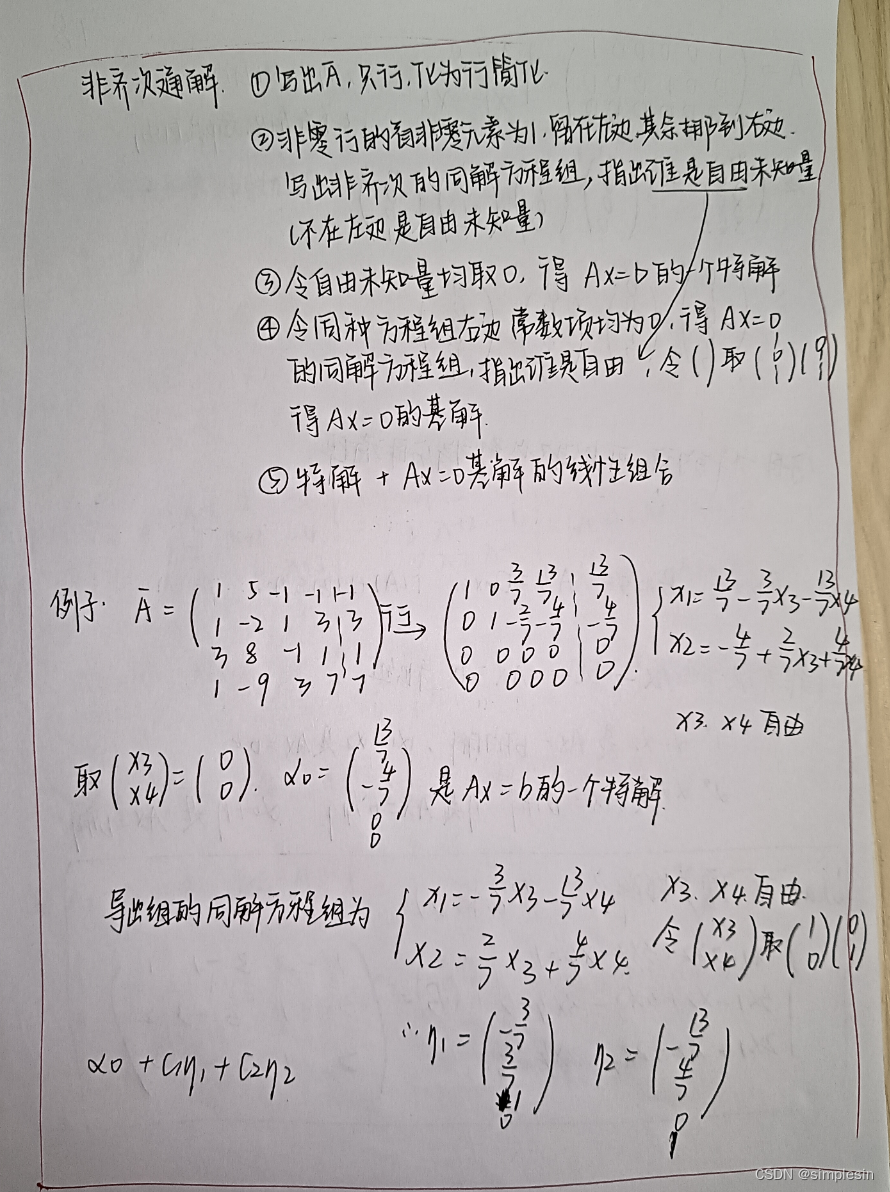 非齐次通解. ①写出Ā,只行,化为行简化.
②非零行的首非零元素为1,留在左边,其余挪到右边.
写出非齐次的同解方程组,指出谁是自由未知量
(不在左边是自由未知量)
③令自由未知量均取0,得 Ax=b的一个特解
④令同种方程组右边 常数项均为0,得 Ax=0
的同解方程组,指出谁是自由,令( )取
得 Ax=0的基解.
⑤特解 + Ax=0基解的线性组合
例子. Ā = ( 1 5 -1 -1 | -1
1 -2 1 3 | 3
3 8 -1 1 | 1
1 -9 3 7 | 7 ) 行→ ( 1 0 3/7 13/7 | 13/7
0 1 -2/7 -4/7 | -4/7
0 0 0 0 | 0
0 0 0 0 | 0 ). { x1 = 13/7 - 3/7 x3 - 13/7 x4
x2 = -4/7 + 2/7 x3 + 4/7 x4
x3. x4 自由
取 (x3 x4) = (0 0). α0 = (13/7 -4/7 0 0) 是 Ax=b的一个特解.
导出组的同解方程组为 { x1 = -3/7 x3 - 13/7 x4
x2 = 2/7 x3 + 4/7 x4.
x3. x4 自由.
令 (x3 x4) 取 (1 0) (0 1)
∴ η1 = (-3/7 3/7 1 0) η2 = (-13/7 4/7 0 1)
α0 + C1η1 + C2η2
CSDN @simplesin